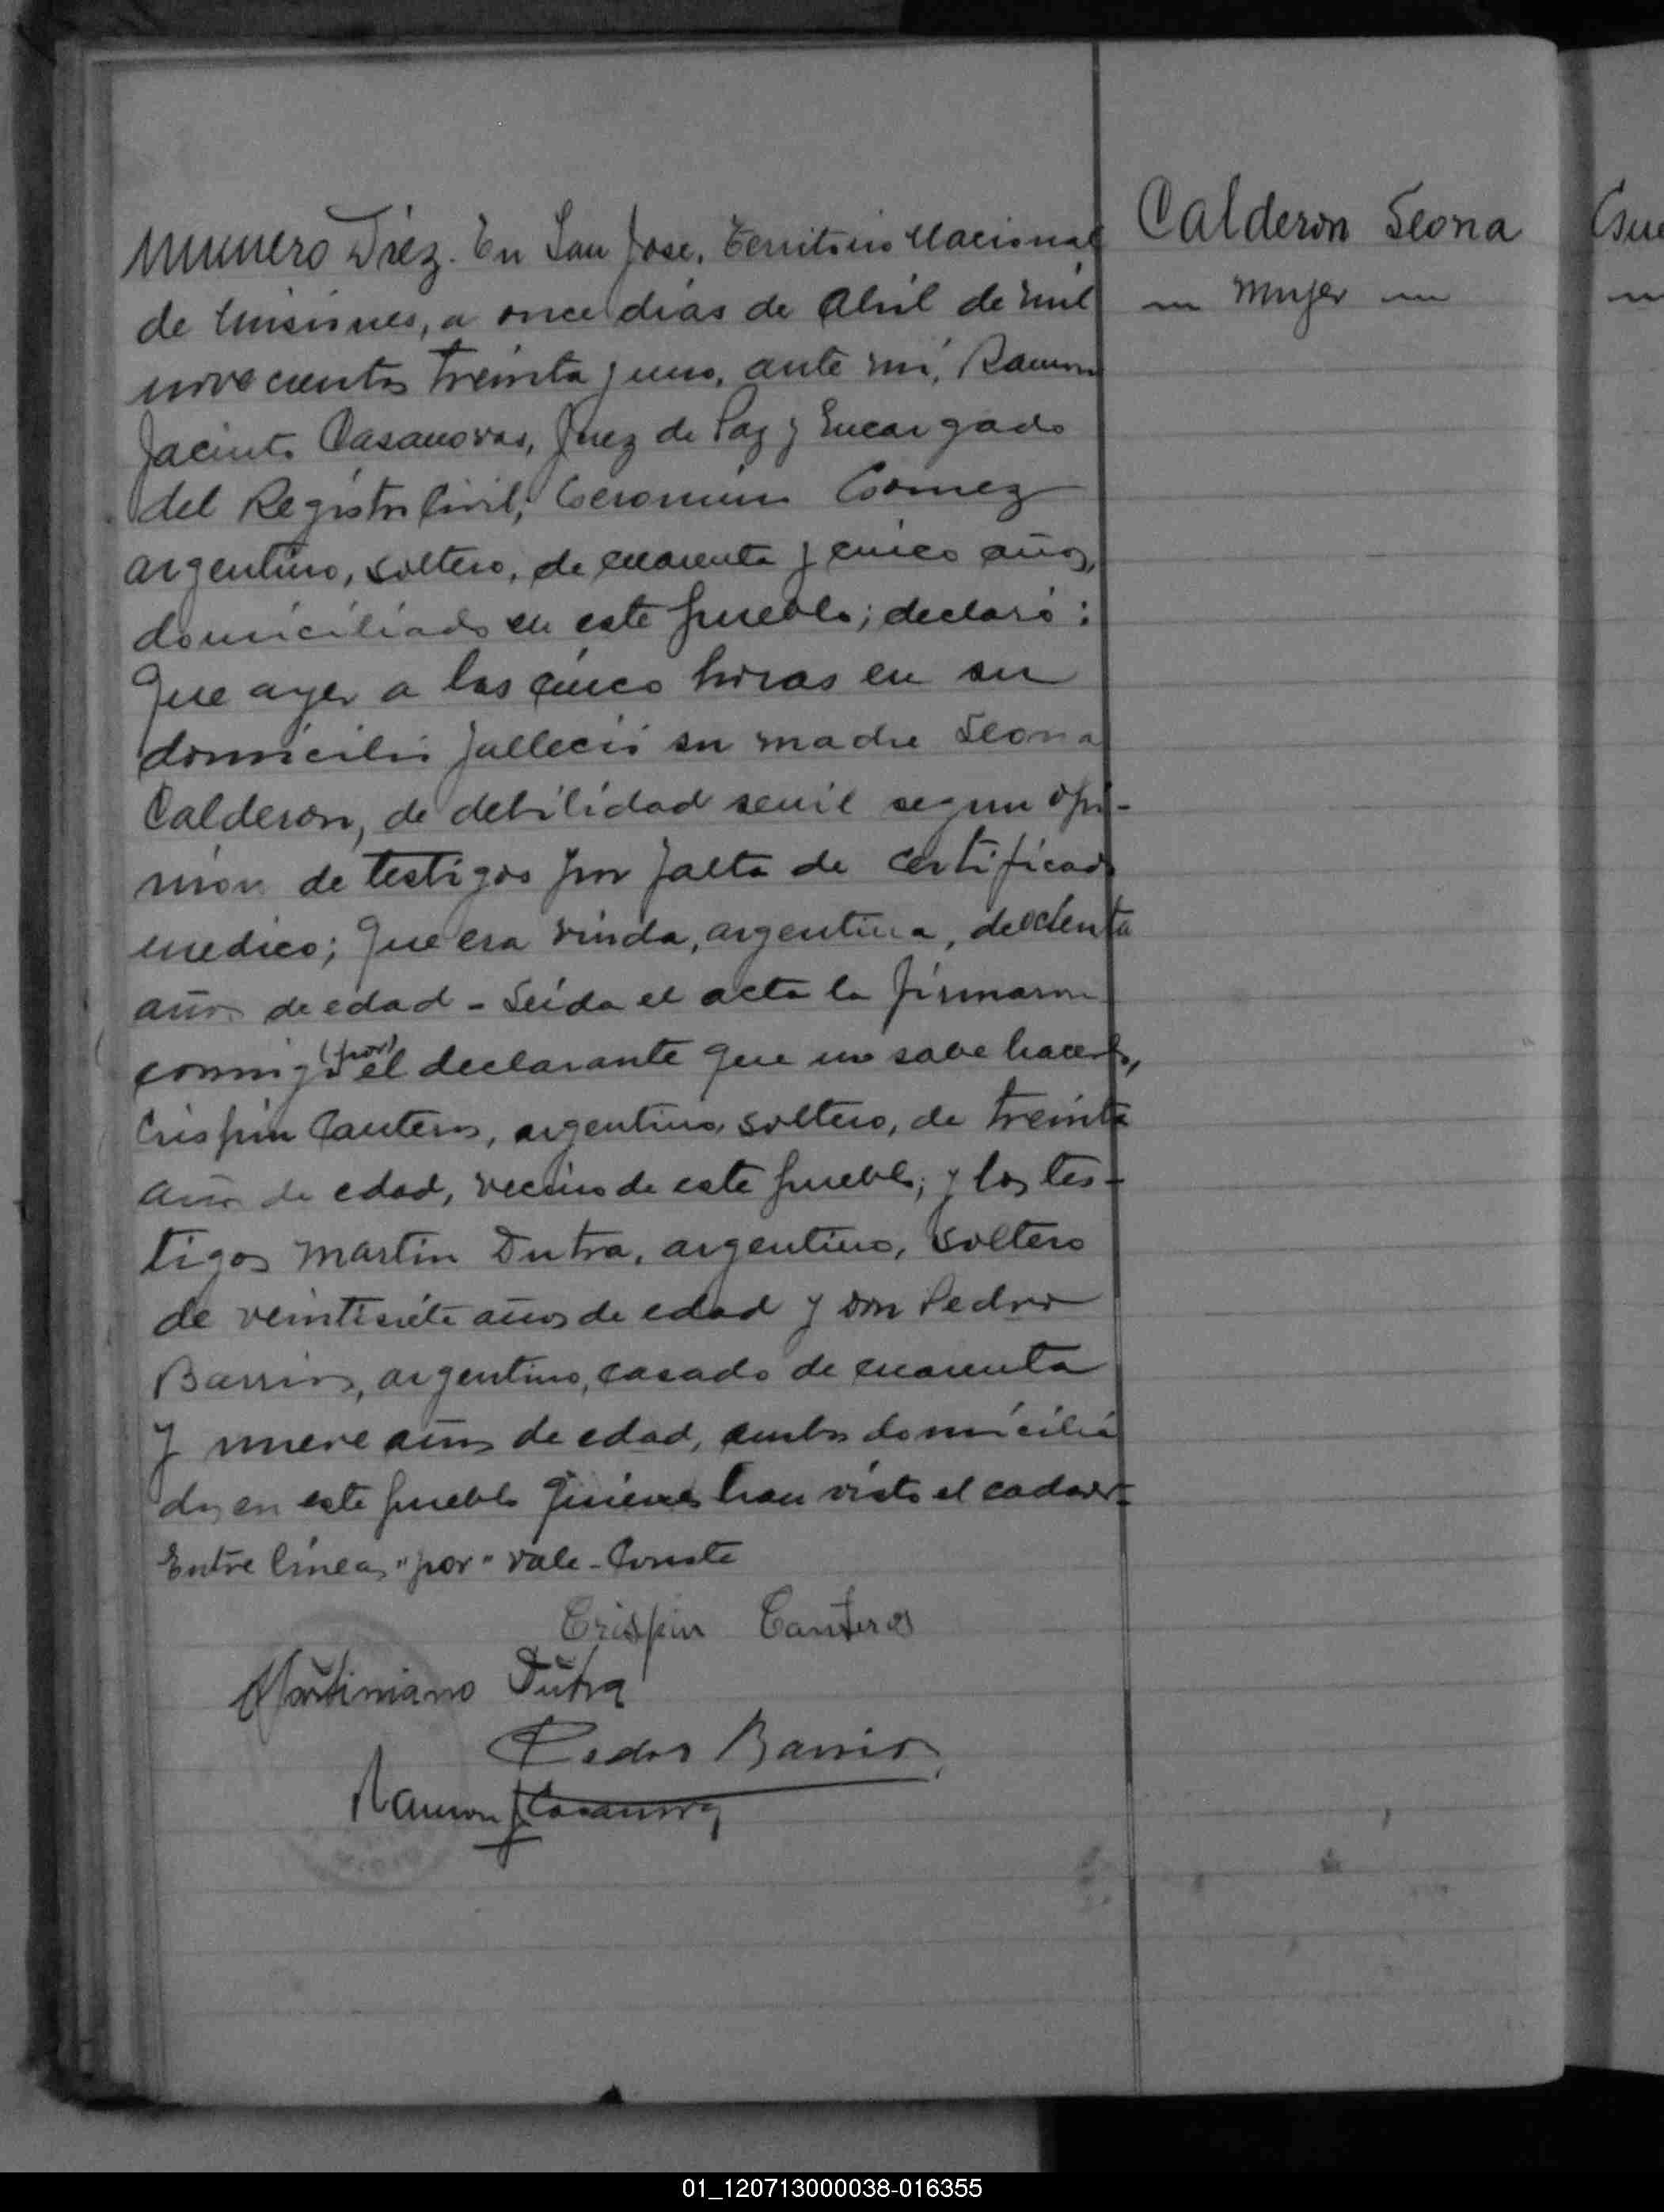 Calderon Leona
Mujer
Numero Diez. En San Jose, Territorio Nacional
de Misiones, a once dias de Abril de mil
novecientos treinta y uno, ante mi, Ramon
Jacinto Casanovas, Juez de Paz y Encargado
del Registro Civil; Geronimo Gomez
argentino, soltero, de cuarenta y cinco años,
domiciliado en este pueblo; declaró:
Que ayer a las cinco horas en su
domicilio falleció su madre Leona
Calderon, de debilidad senil segun opi-
nion de testigos por falta de certificado
medico; Que era viuda, argentina, de ochenta
años de edad - Leida el acta la firmaron
conmigo (por) el declarante que no sabe hacerlo,
Crispin Canteros, argentino, soltero, de treinta
años de edad, vecino de este pueblo; y los tes-
tigos Martin Dutra, argentino, soltero
de veintisiete años de edad y don Pedro
Barrios, argentino, casado de cuarenta
y nueve años de edad, ambos domicilia
dos en este pueblo quienes han visto el cadaver-
Entre lineas "por" vale - Conste
Crispin Canteros
Martiniano Dutra
Pedro Barrios
Ramon J Casanovas
01_120713000038-016355